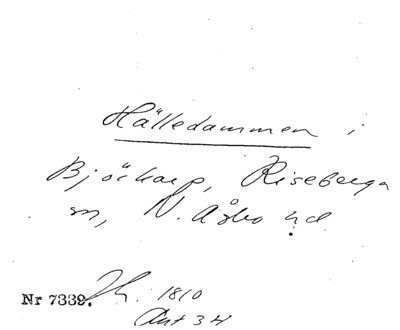 Hälledammen i
Björkarp, Riseberga
sn, N. Åsbo hd
Nr 7339. 1810
Ant 34